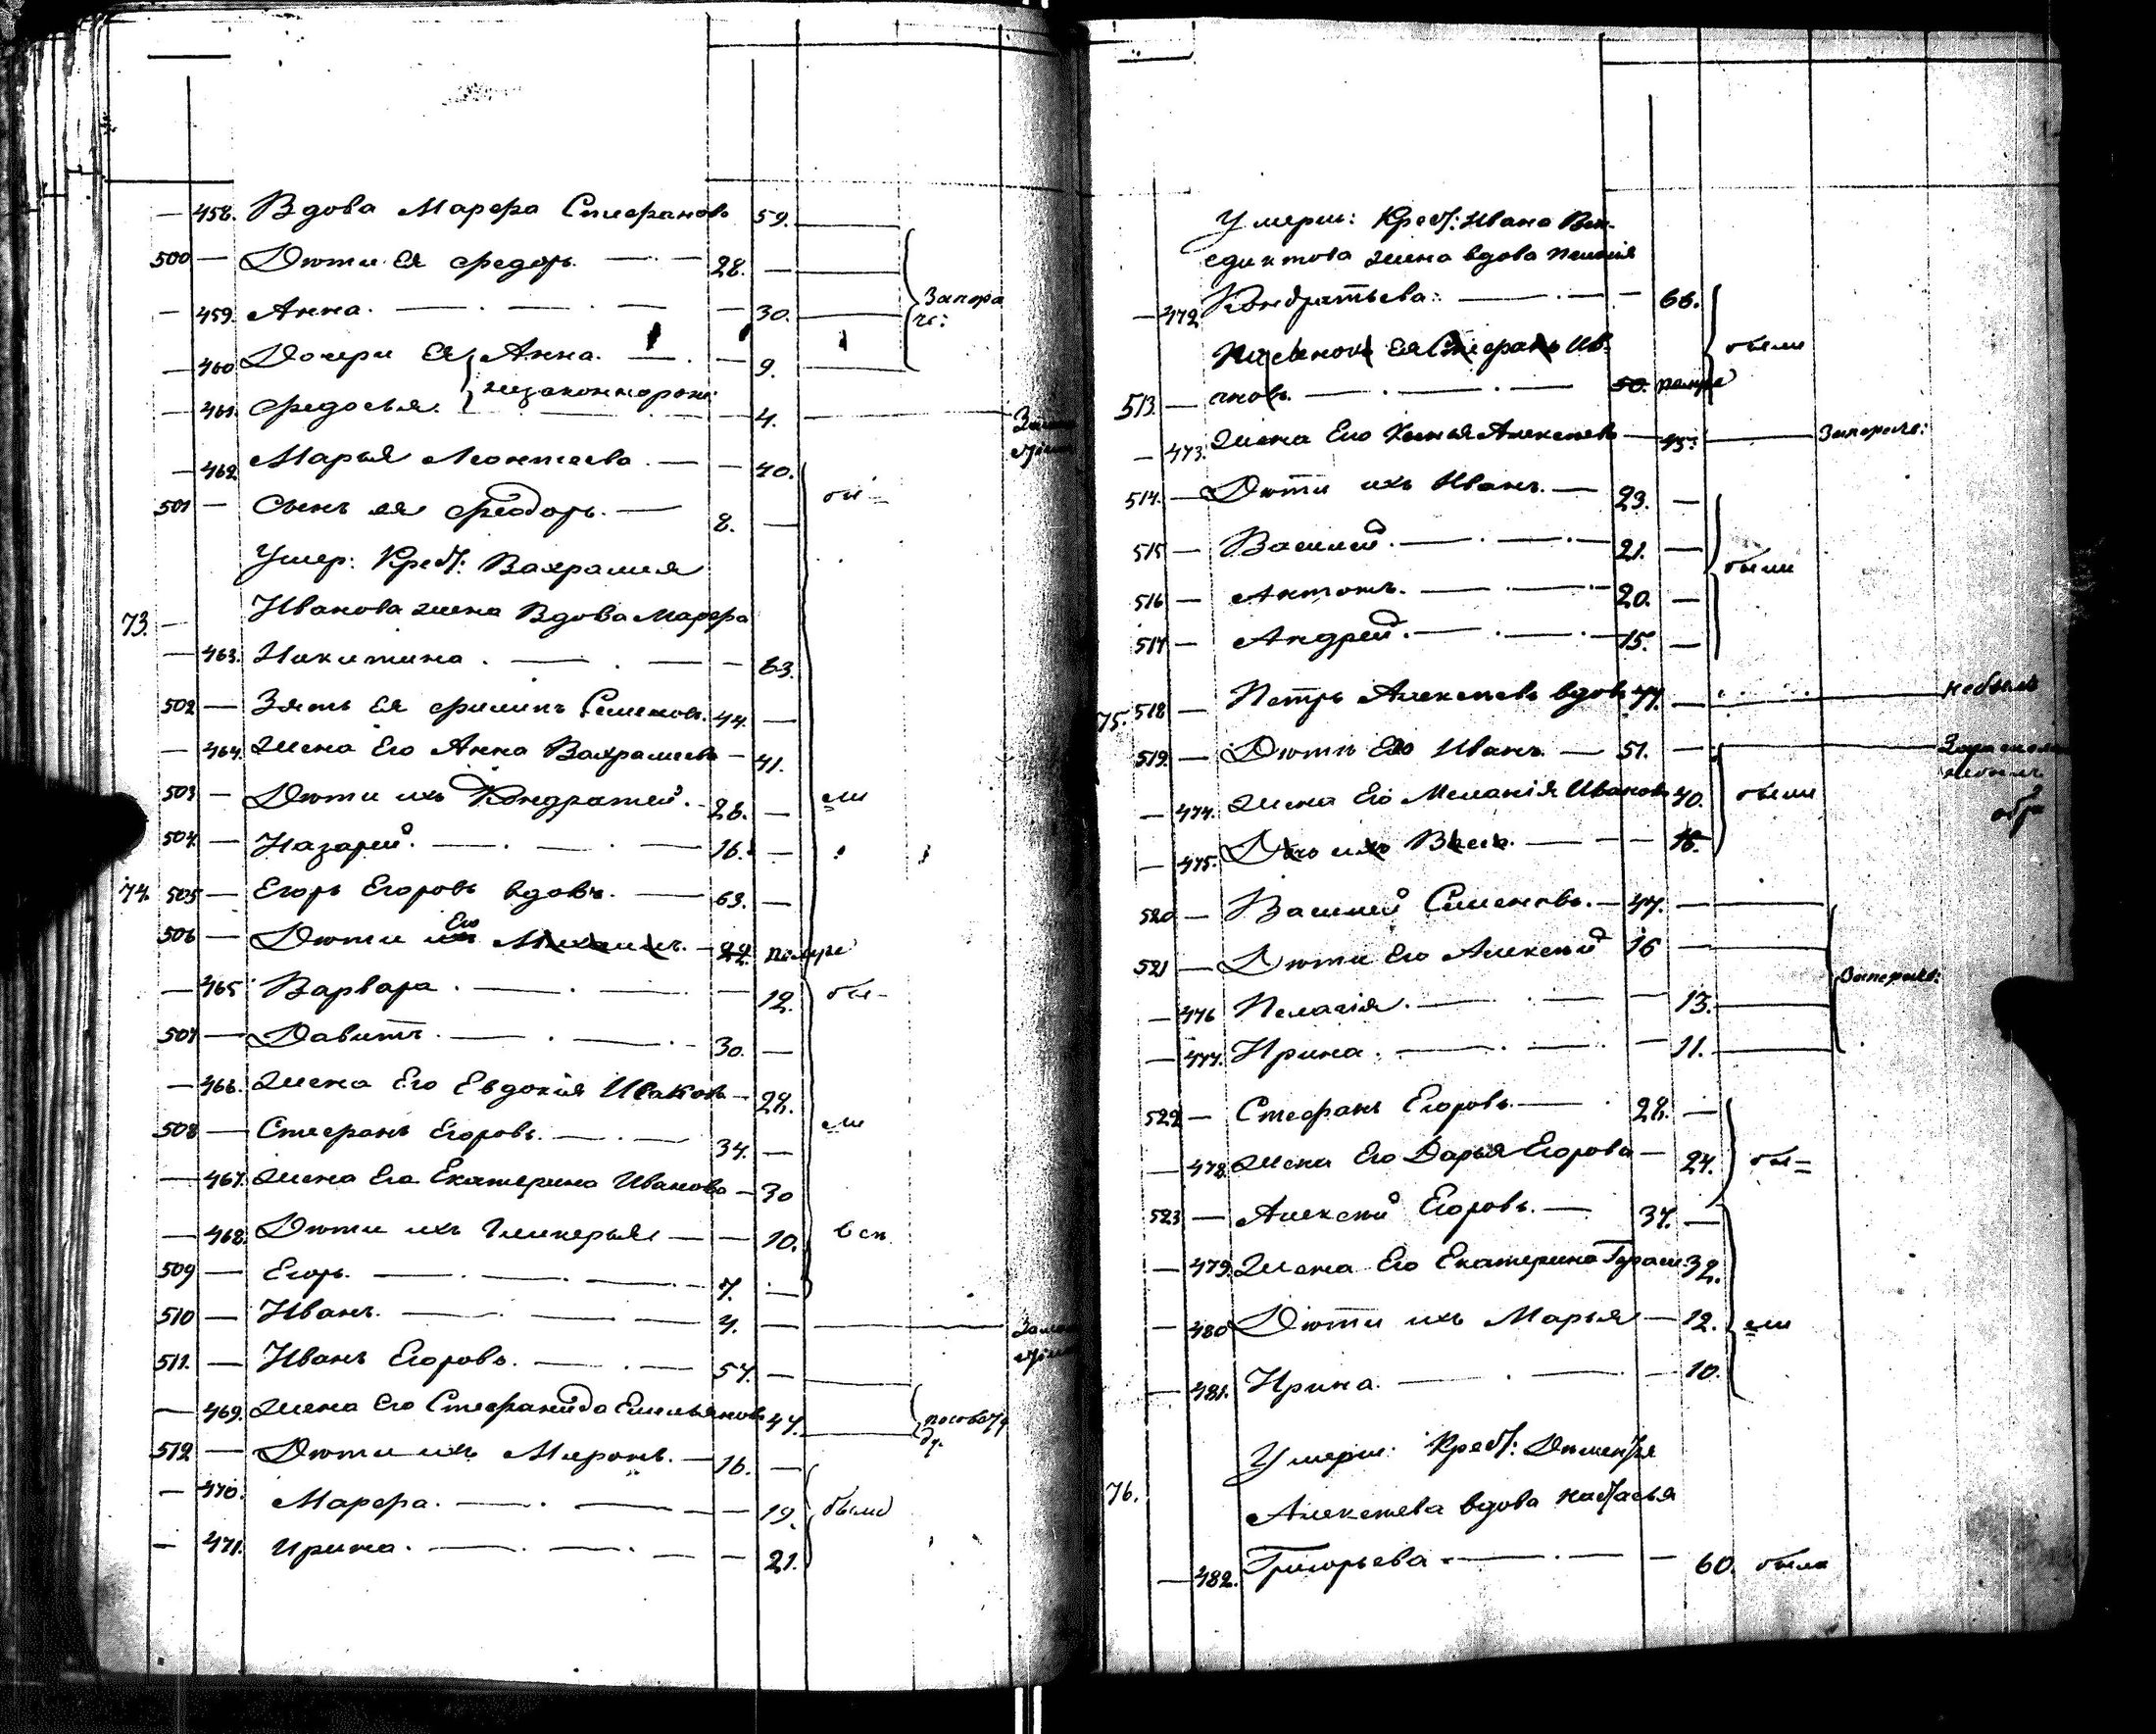 — 458. Вдова Марѳа Стефанова 59. —
500 — Дѣти ея Ѳедоръ — 28. —
— 459. Анна. — 30. — Запора
ге:
— 460 Дочери ея Анна. — 9. —
незаконнорож:
— 461. Ѳедосья. — 4. —
— 462. Марья Леонтьева. — 40.
501 — Сынъ ея Ѳеодоръ. — 8. — бы=
Умер: Крест: Вахрамея
73. — Иванова жена вдова Марѳа
— 463. Никитина. — 63.
502 — Зять ея Филипъ Семеновъ. 44. —
— 464. Жена Его Анна Вахрамеева — 41.
503 — Дѣти ихъ Кондратей. — 26. — ли
504. — Назарей. — 16. —
74. 505 — Егоръ Егоровъ вдовъ. — 63. —
Его
506 — Дѣти Михаилъ. — 22. помре
— 465 Варвара. — 12. бы-
507 — Давитъ. — 30. —
— 466. Жена Его Евдокия Иванова — 28.
508 — Стефанъ Егоровъ. — 34. — ли
— 467. Жена Его Екатерина Иванова — 30
— 468. Дѣти ихъ Гликерья — 10. вси
509 — Егоръ. — 7. —
510 — Иванъ. — 4. —
511. — Иванъ Егоровъ. — 57. —
— 469. Жена Его Стефанида Емельянова 47.
512 — Дѣти ихъ Миронъ. — 16. —
— 470. Марѳа. — 19. были
— 471. Ирина. — 21.
Умерш: Крест: Ивана Вен-
едиктова жена вдова
— 472. Кондратьева: — 66.
Ея Стефанъ Ив- были
513. — новъ. — 50. помре
— 473. Жена Его Ксенья Алексеева — 45. — Запороге:
514. — Дѣти ихъ Иванъ. — 23. —
515 — Василей. — 21. —
были
516 — Антонъ. — 20. —
517 — Андрей. — 15. —
75. 518 — Петръ Алексеевъ вдовъ 77. — небылъ
519. — Дѣти Его Иванъ — 51. —
— 474. Жена Его Меланія Иванова 40. были
— 475. 16.
520 — Василей Семеновъ. — 47. —
521 — Дѣти Его Алексѣй 16 —
Запороге:
— 476 Пелагія. — 13. —
— 477. Ирина. — 11. —
522 — Стефанъ Егоровъ. — 28. —
— 478. Жена Его Дарья Егорова — 24. бы=
523 — Алексѣй Егоровъ. — 37. —
— 479. Жена Его Екатерина Герасим 32.
— 480 Дѣти ихъ Марья — 12. ли
— 481. Ирина. — 10.
Умерш: Крест: Дементья
76. Алексеева вдова Настасья
— 482. Григорьева — 60. была